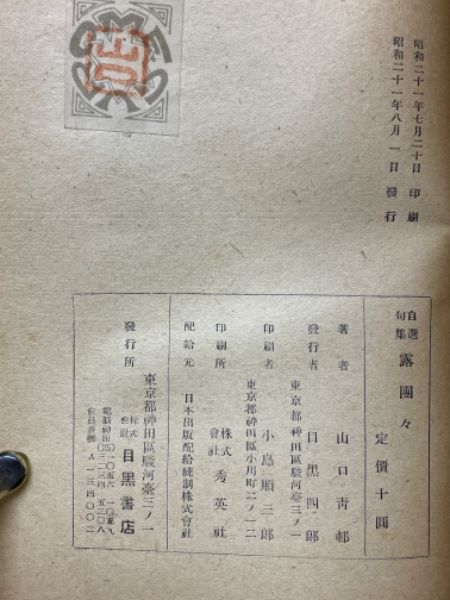 昭和二十一年七月二十日 印刷
昭和二十一年八月一日 發行
自選句集 露團々
定價十圓
著者 山口靑邨
發行者 目黑四郎
東京都神田區駿河臺三ノ一
印刷者 小島順三郎
東京都神田區小川町二ノ一二
印刷所 株式會社 秀英社
配給元 日本出版配給統制株式會社
發行所 東京都神田區駿河臺三ノ一
株式會社 目黑書店
電話神田(25)
會員番號 A一三四〇〇二